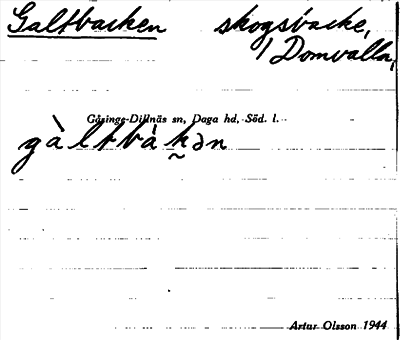 Galtbacken skogsbacke,
/ Domvalla,
Gåsinge-Dillnäs sn, Daga hd, Söd. l.
gàltbàk̰ən
Artur Olsson 1944